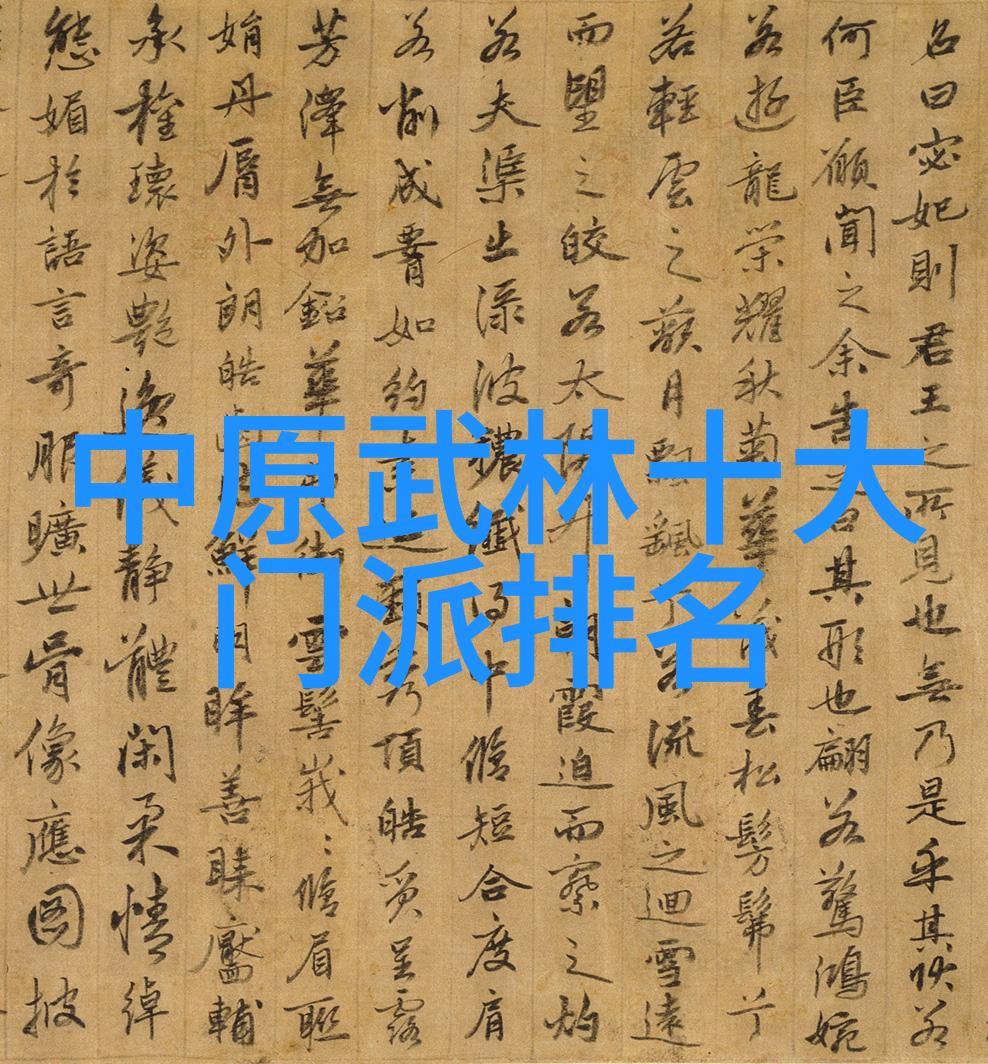 中原武林十大
门派排名
名曰宓妃則君王之所見也無乃是乎其狀若
何臣願聞之余告之曰其形也翩若驚鴻婉
若遊龍榮耀秋菊華茂春松髣髴兮
若輕雲之蔽月飄飖兮若流風之迴雪遠
而望之皎若太陽升朝霞迫而察之灼
若夫渠出淥波穠纖得中脩短合度肩
若削成腰如約素延頸秀項皓質呈露
芳澤無加鉛華弗御雲髻峩〻脩眉聯
娟丹脣外朗皓齒內鮮明眸善睞靨輔
承權瓌姿艷逸儀靜體閑柔情綽
態媚於語言奇服曠世骨像應圖披